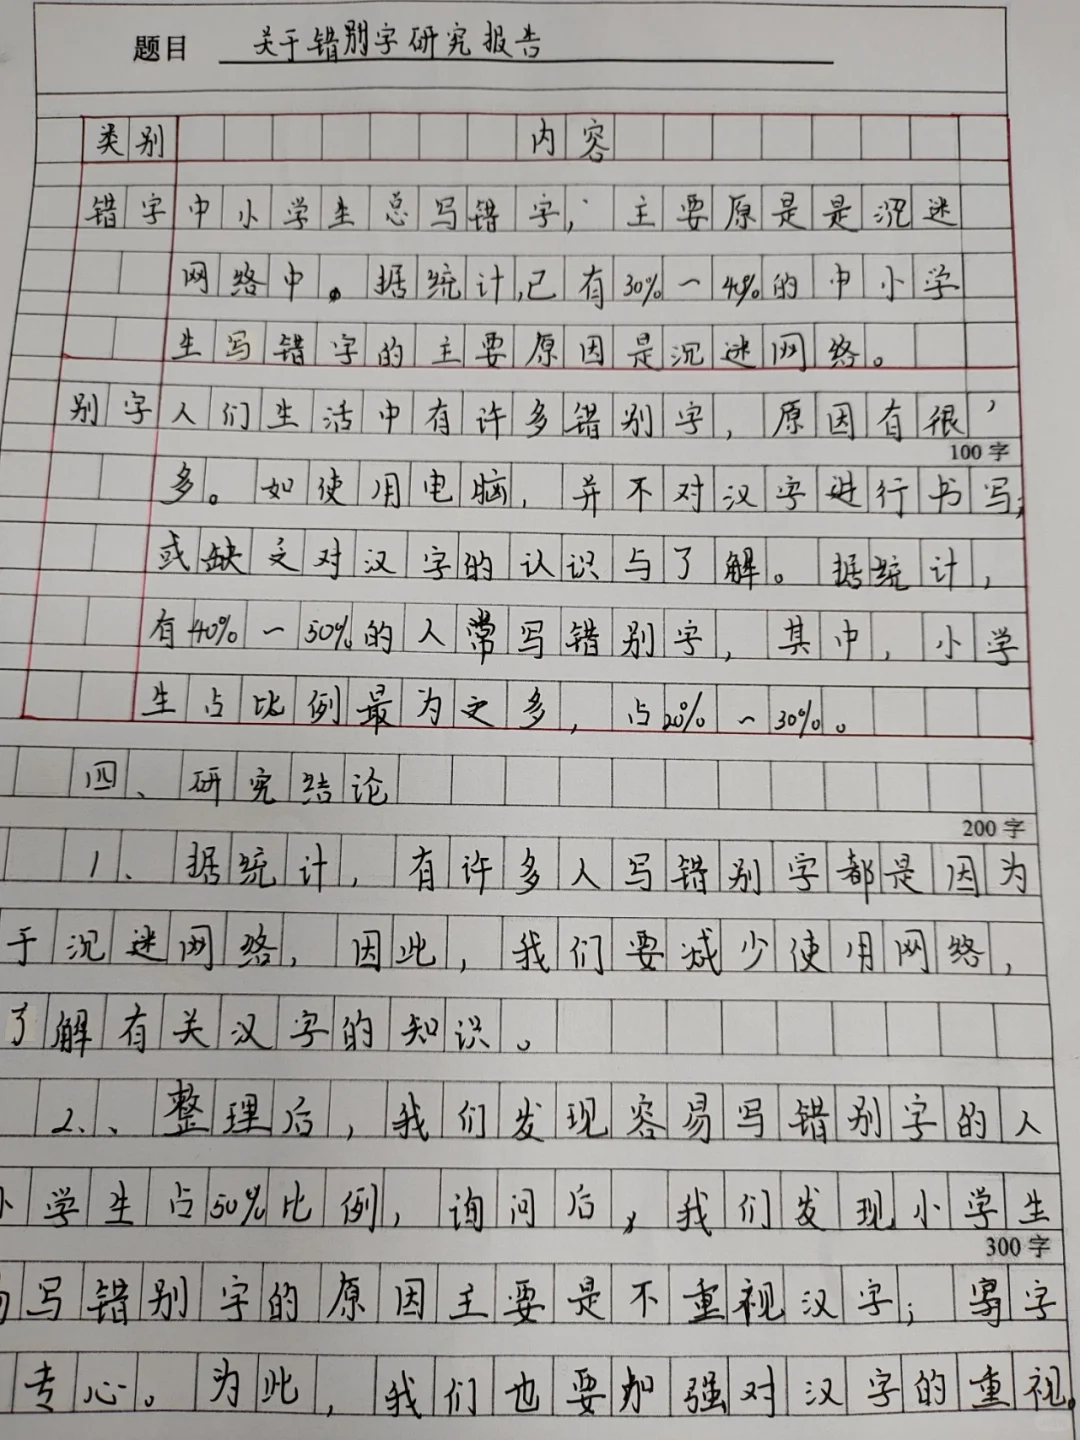 题目 关于错别字研究报告
类别 内容
错字 中小学生总写错字，主要原是是沉迷
网络中。据统计，已有30%~40%的中小学
生写错字的主要原因是沉迷网络。
别字 人们生活中有许多错别字，原因有很
100字
多。如使用电脑，并不对汉字进行书写；
或缺乏对汉字的认识与了解。据统计，
有40%~50%的人常写错别字，其中，小学
生占比例最为之多，占20%~30%。
四、研究结论
200字
1、据统计，有许多人写错别字都是因为
于沉迷网络，因此，我们要减少使用网络，
了解有关汉字的知识。
2、、整理后，我们发现容易写错别字的人
小学生占50%比例，询问后，我们发现小学生
300字
写错别字的原因主要是不重视汉字；写字
专心。为此，我们也要加强对汉字的重视。